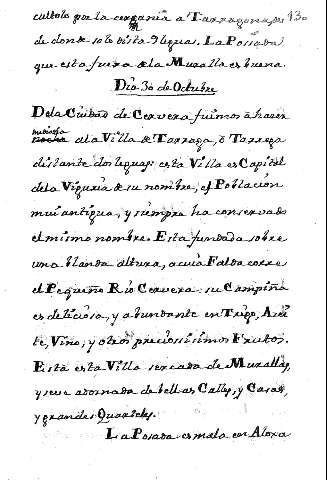 cultolo por la cercania a Tarragona, de 130
de donde solo dista 9 leguas. La Posada
que esta fuera de la Muralla es buena.
Dia 30 de Octubre
Dela Ciudad de Cervera fuimos â hacer
mediodia
noche ala Villa de Tarraga, ô Tarrega
distante dos leguas: esta Villa es Capital
dela Vigueria de su nombre, es Población
mui antigua, y siempre ha conservado
el mismo nombre. Esta fundada sobre
una blanda altura, a cuia Falda corre
el Pequeño Rio Cervera: su Campiña
es deliciosa, y abundante en Trigo, Acei
te, Vino, y otros preciosissimos Frutos.
Està esta Villa sercada de Murallas,
y se ve adornada de bellas Calles, y Casas,
y grandes Quarteles.
La Posada es mala en Aloxa